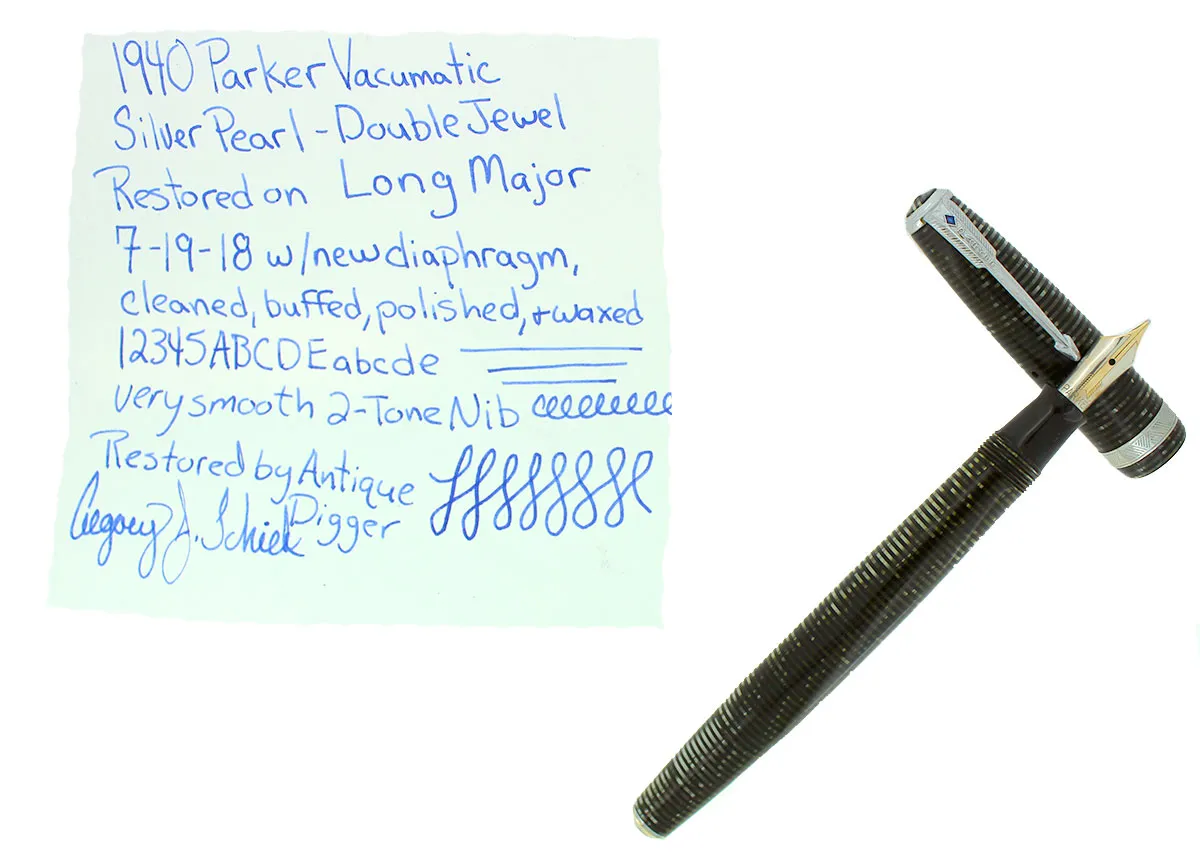 1940 Parker Vacumatic
Silver Pearl - Double Jewel
Restored on Long Major
7-19-18 w/new diaphragm,
cleaned, buffed, polished, + waxed
12345ABCDEabcde
very smooth 2-Tone Nib
Restored by Antique
Digger
Gregory J. Schiek
PARKER